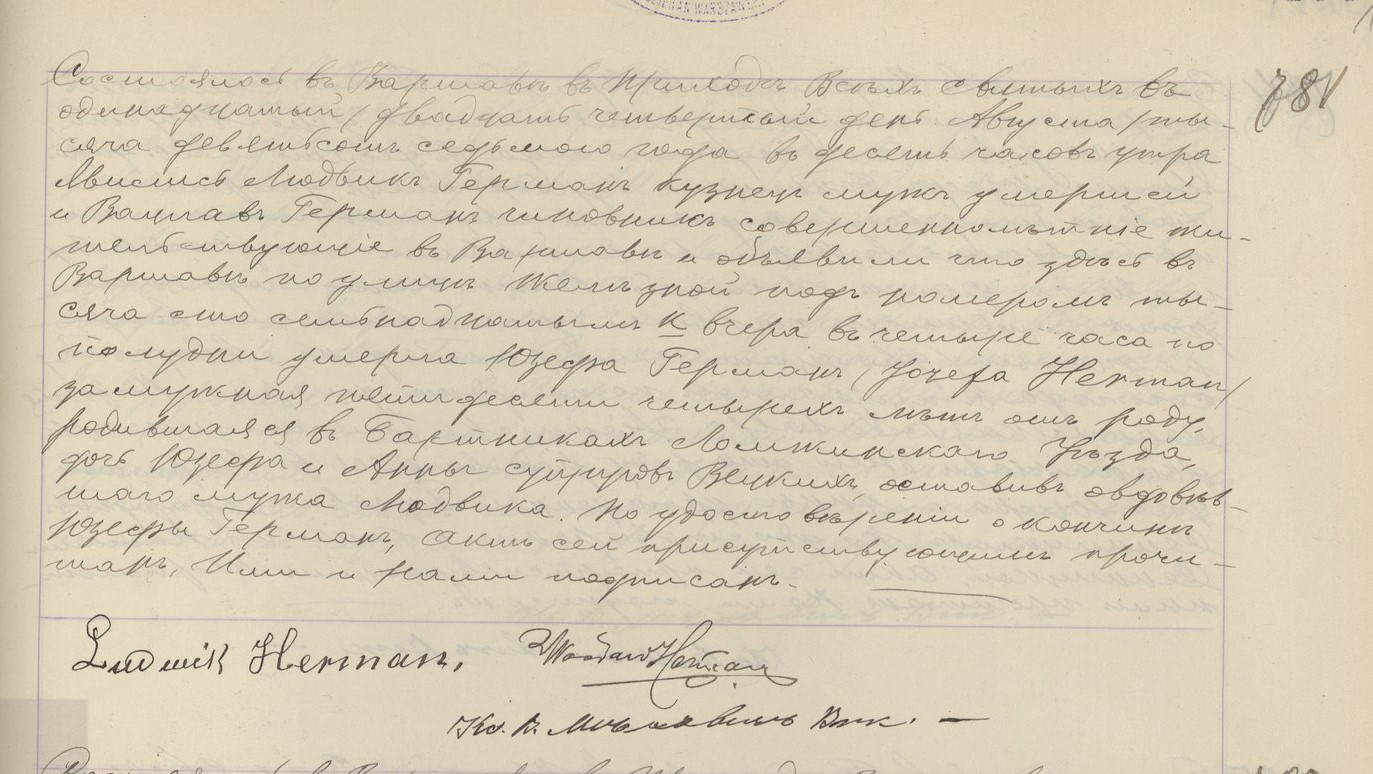 WARSZAWSKI
Состоялось въ Варшавѣ въ Приходѣ Всѣхъ Святыхъ въ
одинадцатый / двадцать четвертый день Августа / ты-
сяча девятьсотъ седьмого года въ десять часовъ утра
Явились Людвикъ Германъ кузнецъ мужъ умершей
и Вацлавъ Германъ чиновникъ совершеннолѣтніе жи-
тельствующіе въ Варшавѣ и объявили что здѣсь въ
Варшавѣ по улицѣ Желѣзной подъ номеромъ ты-
сяча сто семьнадцатымъ К вчера въ четыре часа по
полудни умерла Юзефа Германъ / Józefa Herman /
замужная пятидесяти четырехъ лѣтъ отъ роду,
родившаяся въ Бартникахъ Ломжинскаго Уѣзда,
дочь Юзефа и Анны супруговъ оставивъ овдовѣв-
шаго мужа Людвика. По удостовѣреніи о кончинѣ
Юзефы Германъ, Актъ сей присутствующимъ прочи-
танъ, Ими и Нами подписанъ.
781
Ludwik Herman.
Herman
Кс. В. Вик. —